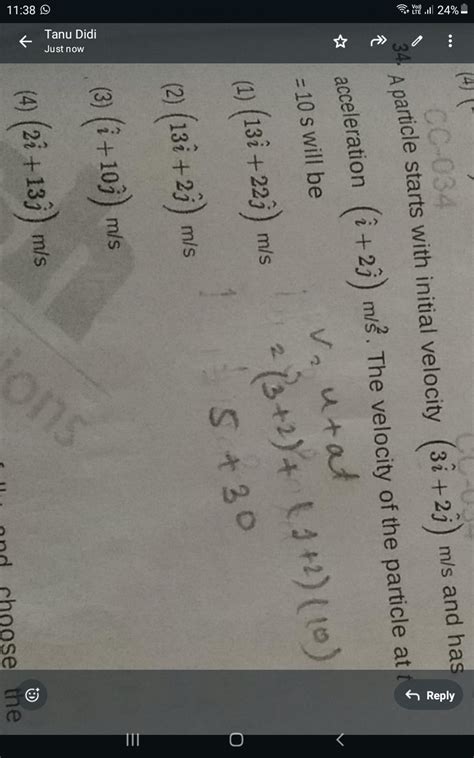 11:38
24%
Tanu Didi
Just now
(4) (
CC-034
34. A particle starts with initial velocity (3î + 2ĵ) m/s and has
acceleration (î + 2ĵ) m/s². The velocity of the particle at t
= 10 s will be
(1) (13î + 22ĵ) m/s
(2) (13î + 2ĵ) m/s
(3) (î + 10ĵ) m/s
(4) (2î + 13ĵ) m/s
v = u + at
= (3+2) + (1+2)(10)
5 + 30
and choose the
ions
Reply